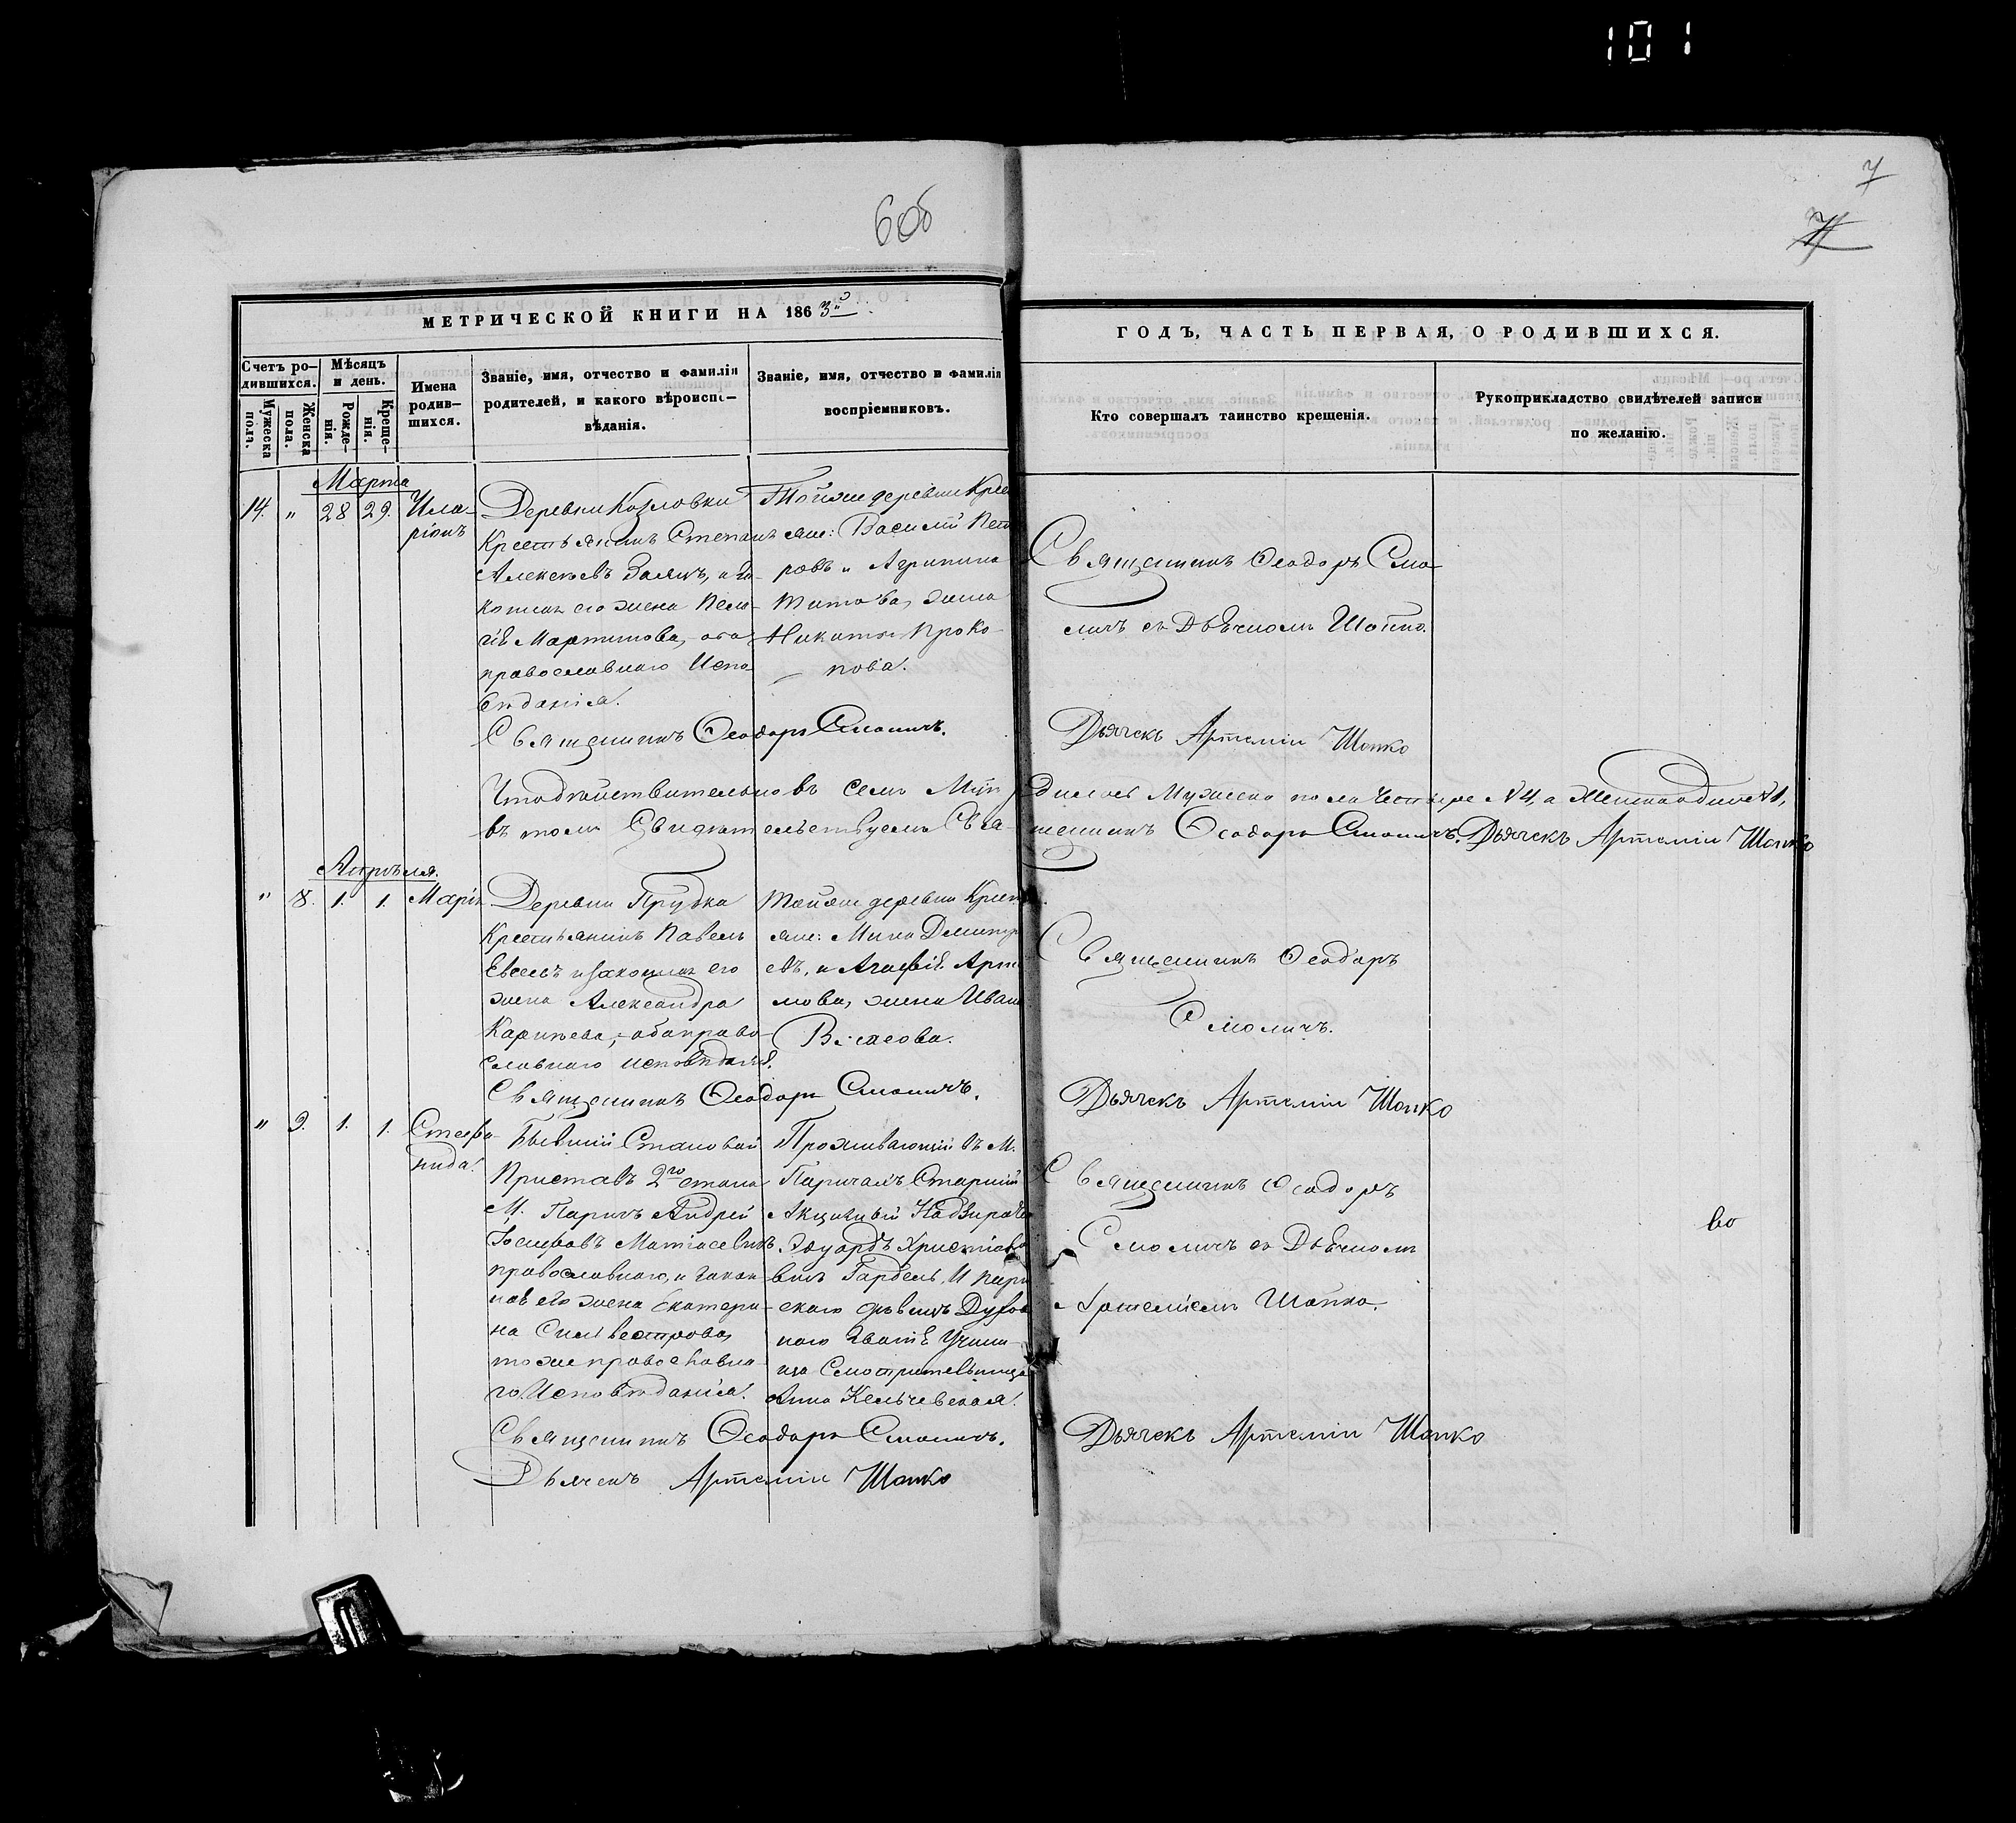 101
7
7
6об
МЕТРИЧЕСКОЙ КНИГИ НА 1863й
ГОДЪ, ЧАСТЬ ПЕРВАЯ, О РОДИВШИХСЯ.
Счетъ ро-
дившихся.
Мужеска
пола.
Женска
пола.
Мѣсяцъ
и день.
Рожде-
нія.
Креще-
нія.
Имена
родив-
шихся.
Званіе, имя, отчество и фамилія
родителей, и какого вѣроиспо-
вѣданія.
Званіе, имя, отчество и фамилія
воспріемниковъ.
Кто совершалъ таинство крещенія.
Рукоприкладство свидѣтелей записи
по желанію.
Марта
14. " 28 29. Ила-
ріонъ
Деревни Козловки
Крестьянинъ Степанъ
Алексѣевъ и за-
конная его жена Пела-
гія Мартинова, оба
православнаго Испо
вѣданія.
Тойже деревни Крес
яне: Василій Пет
ровъ и Агрипина
Титова, жена
Никиты Проко-
пова.
Священникъ Ѳеодоръ Смо
личъ съ Дьячкомъ Шопко.
Священникъ Ѳеодоръ Смоличъ.
Дьячекъ Артемій Шопко
Что дѣйствительно въ семъ М-цѣ родилось Мужеска пола Четыре № 4, а Женска одинъ № 1,
въ томъ Свидѣтельствуемъ Священникъ Ѳеодоръ Смоличъ. Дьячекъ Артемій Шопко
Апрѣля.
" 8. 1. 1. Марія
Деревни Прудка
Крестьянинъ Павелъ
Евсевъ и законная его
жена Александра
Карпѣева, оба право-
славнаго исповѣданія.
Тойже деревни Крест
яне: Мина Дмитр
евъ, и Агафія Арте
мова, жена Ивана
Власова.
Священникъ Ѳеодоръ
Смоличъ.
Священникъ Ѳеодоръ Смоличъ.
Дьячекъ Артемій Шопко
" 9. 1. 1. Стефа-
нида.
Бывшій Становой
Приставъ 2го стана
М. Паричъ Андрей
Іосифовъ Матіасевичъ
православнаго, и закон
ная его жена Екатери-
на Сильвестрова,
тоже православна-
го Исповѣданія.
Проживающій въ М.
Паричахъ Старшій
Акцизный Надзиратель
Эдуардъ Христіано
вичъ Гардель, И Пари
скаго дѣвичъ Духов
наго званія Учили-
ща Смотрительница
Анна Кельчевская.
Священникъ Ѳеодоръ
Смоличъ съ Дьячкомъ
Артеміемъ Шопко.
Священникъ Ѳеодоръ Смоличъ.
Дьячекъ Артемій Шопко
Дьячекъ Артемій Шопко